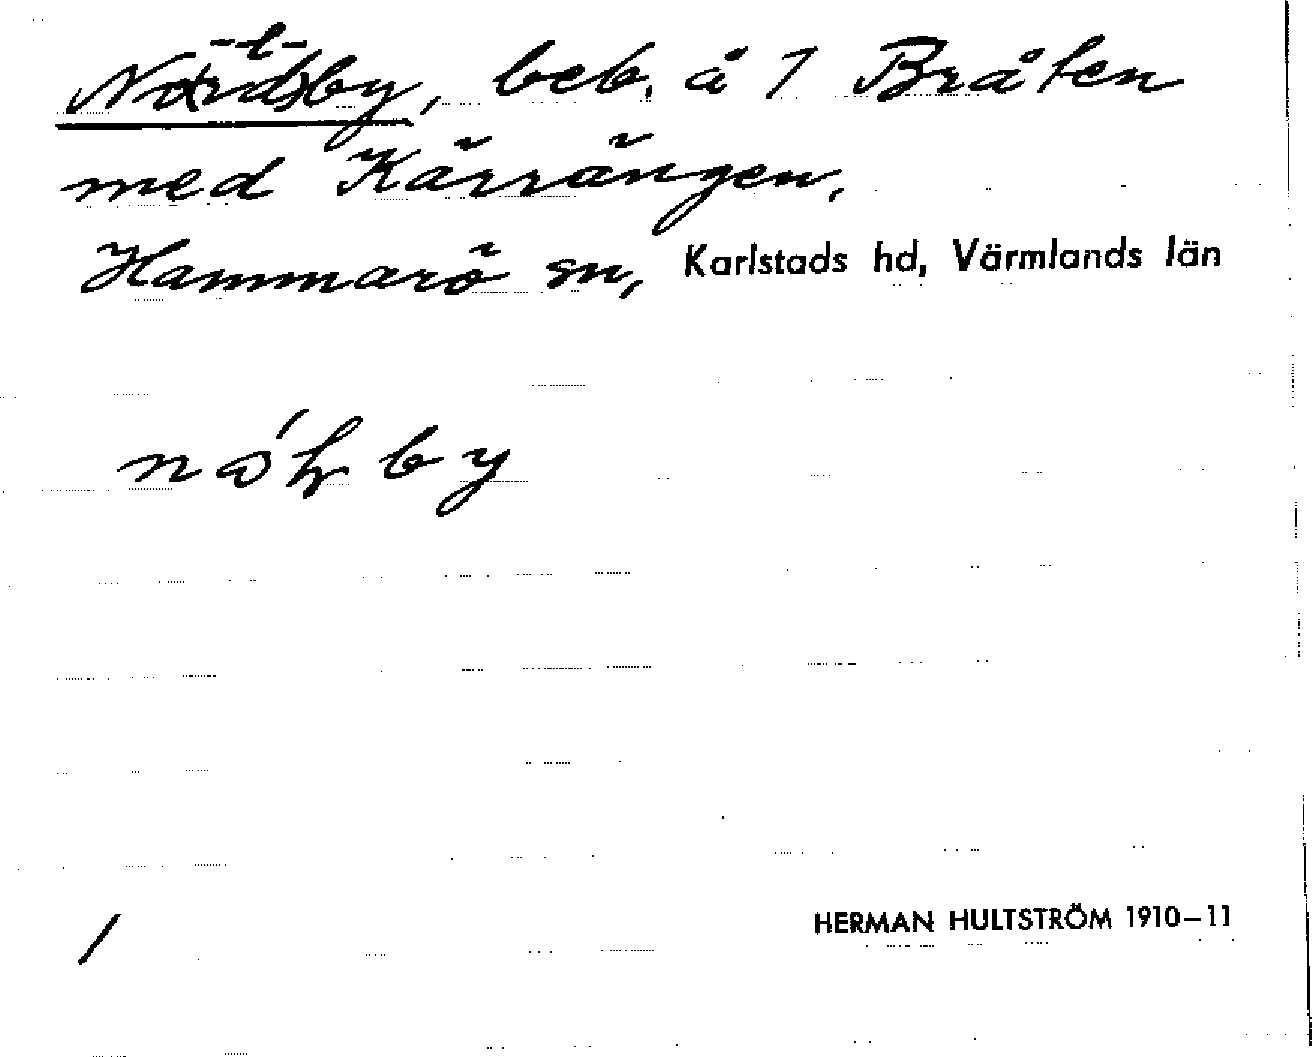 -l-
Nordsby, beb. å 1 Bråten
med Kärrängen,
Hammarö sn, Karlstads hd, Värmlands län
by
/
HERMAN HULTSTRÖM 1910–11